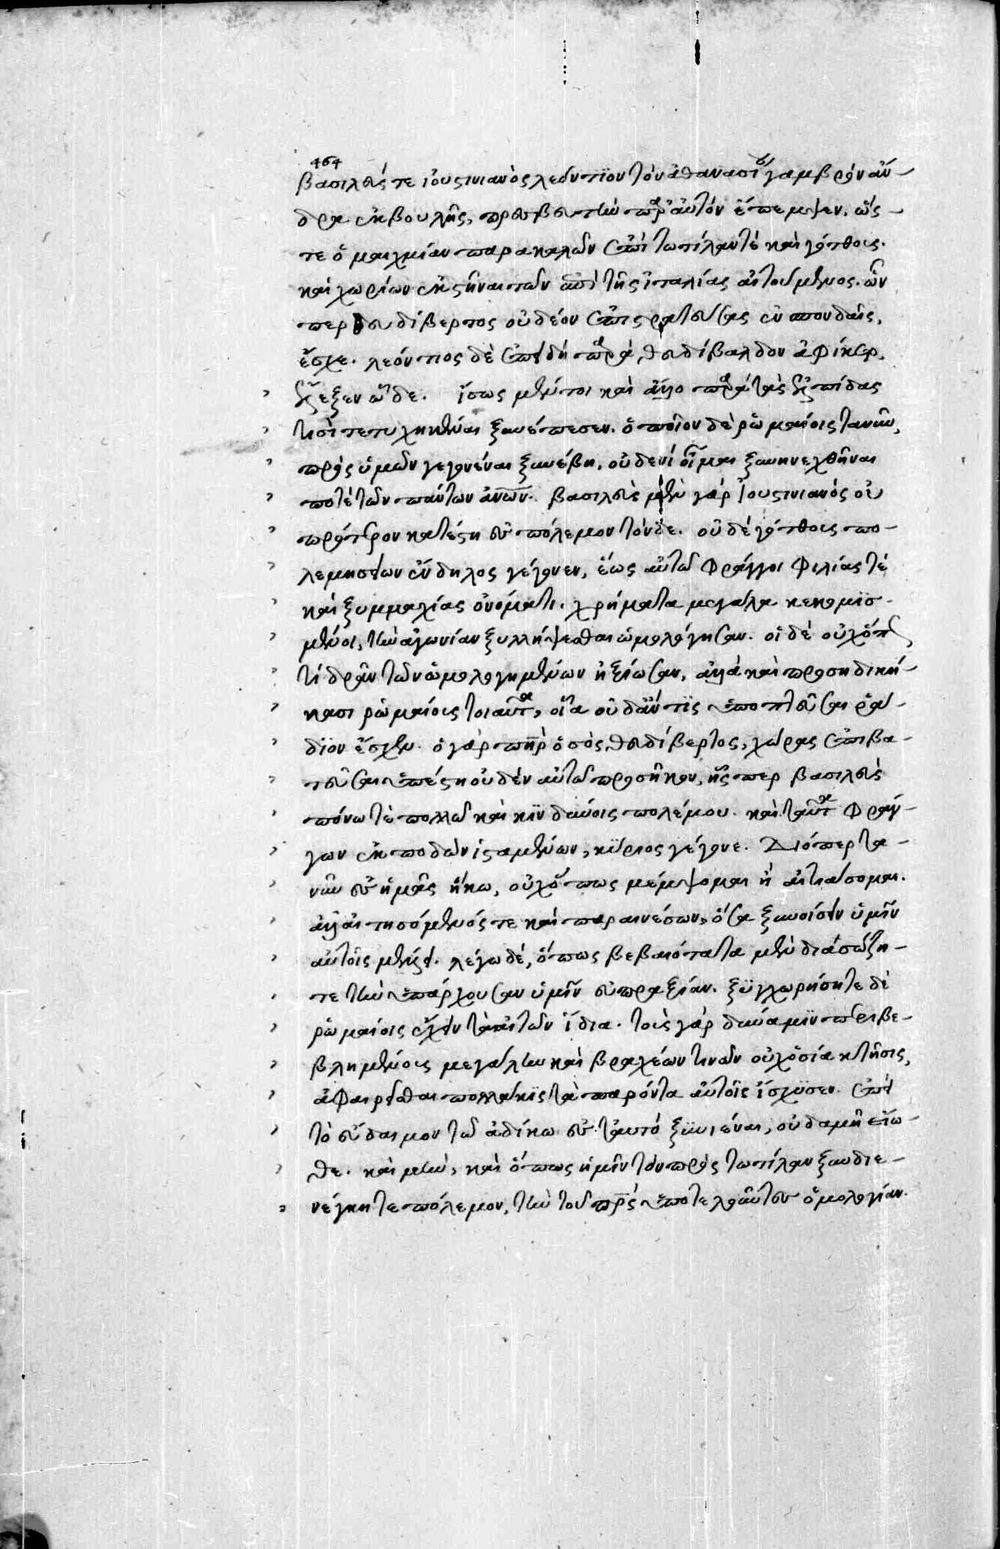 464
βασιλεύς τε ἰουστινιανὸς λεόντιον τὸν ἀθανασίου γαμβρὸν ἄν-
δρα ἐκ βουλῆς, πρεσβευτὴν παρ' αὐτὸν ἔπεμψεν, ὥς-
τε ὁμαιχμίαν παρακαλῶν ἐπὶ τωτίλαν τὲ καὶ γότθοις.
καὶ χωρίων ἐκστῆναι τῶν ἀπὸ τῆς ἰταλίας αἰτούμενος. ὧν
περ θευδίβερτος οὐδέον ἐπιβατεῦσας ἐν σπουδαῖς,
ἔσχε. λεόντιος δὲ ἐπειδὴ παρὰ θευδίβαλδον ἀφίκετο,
ἔλεξεν ὧδε. ἴσως μέντοι καὶ ἄλλο παρὰ τὰς ἐλπίδας
τισὶ τετυχηκέναι ξυνέπεσεν. ὁποῖον δὲ ῥωμαίοις τανῦν,
πρὸς ὑμῶν γεγονέναι ξυνέβη, οὐδενὶ οἶμαι ξυνηνεχθῆναι
ποτὲ τῶν πάντων ἀνων. βασιλεὺς μὲν γὰρ ἰουστινιανὸς οὐ
πρότερον κατέστη ἐς πόλεμον τόνδε. οὐδὲ γότθοις πο-
λεμησείων ἔνδηλος γέγονεν, ἕως αὐτῶ φράγγοι φιλίας τὲ
καὶ ξυμμαχίας ὀνόματι. χρήματα μεγάλα κεκομισ-
μένοι, τὴν ἀγωνίαν ξυλλήψεσθαι ὡμολόγησαν. οἱ δὲ οὐχ ὅπως
τὶ δρᾶν τῶν ὡμολογημένων ἠξίωσαν, ἀλλὰ καὶ προσηδική-
κασι ῥωμαίοις τοιαῦτα, οἷα οὐδ' ἄν τις ὑποπτεῦσαι ῥαί-
διον ἔσχεν. ὁ γὰρ πηρ ὁ σὸς θευδίβερτος, χώρας ἐπιβα-
τεῦσαι ὑπέστη οὐδὲν αὐτῶ προσῆκον, ἧσπερ βασιλεὺς
πόνω τὲ πολλῶ καὶ κινδύνοις πολέμου. καὶ ταῦτα φράγ-
γων ἐκποδὼν ἱσταμένων, κύριος γέγονε. Διόπερ τα-
νῦν ἐς ἡμᾶς ἥκω, οὐχ ὅπως μέμψομαι ἢ αἰτιάσομαι.
ἀλλ' αἰτησόμενός τε καὶ παραινέσων, ὅσα ξυνοίσειν ὑμῖν
αὐτοῖς μέλλει. λέγω δὲ, ὅπως βεβαιότατα μὲν διασώζη-
τε τὴν ὑπάρχουσαν ὑμῖν εὐπραξίαν. ξυγχωρήσητε δὲ
ῥωμαίοις ἔχειν τὰ αὐτῶν ἴδια. τοῖς γὰρ δύναμιν περιβε-
βλημένοις μεγάλην καὶ βραχέων τινῶν οὐχ ὁσία κτῆσις,
ἀφαιρεῖσθαι πολλάκις τὰ παρόντα αὐτοῖς ἴσχυσεν. ἐπεὶ
τὸ εὔδαιμον τῶ ἀδίκω ἐς ταυτὸ ξυνιέναι, οὐδαμῆ εἴω-
θε. καὶ μὴν, καὶ ὅπως ἡμῖν τὸν πρὸς τωτίλαν ξυνδιε-
νέγκητε πόλεμον, τὴν τοῦ πρς ὑποτελοῦντες ὁμολογίαν.